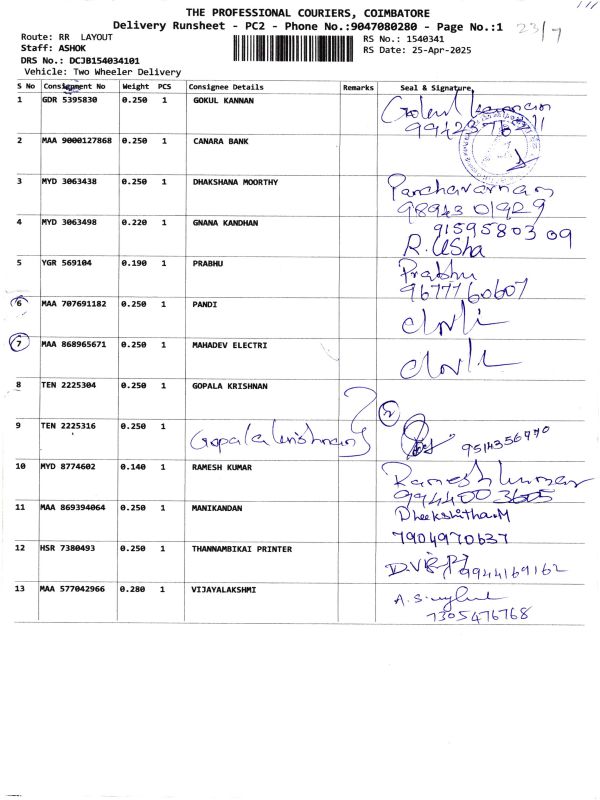 THE PROFESSIONAL COURIERS, COIMBATORE
Delivery Runsheet - PC2 - Phone No.:9047080280 - Page No.:1 23/7
Route: RR LAYOUT RS No.: 1540341
Staff: ASHOK RS Date: 25-Apr-2025
DRS No.: DCJB154034101
Vehicle: Two Wheeler Delivery
S No Consignment No Weight PCS Consignee Details Remarks Seal & Signature
1 GDR 5395830 0.250 1 GOKUL KANNAN Gokul Kannan
2 MAA 9000127868 0.250 1 CANARA BANK
3 MYD 3063438 0.250 1 DHAKSHANA MOORTHY Panchavarnam
9894301929
4 MYD 3063498 0.220 1 GNANA KANDHAN 9159580309
R. Usha
5 YGR 569104 0.190 1 PRABHU Prabhu
9677760607
6 MAA 707691182 0.250 1 PANDI
7 MAA 868965671 0.250 1 MAHADEV ELECTRI
8 TEN 2225304 0.250 1 GOPALA KRISHNAN
9 TEN 2225316 0.250 1 Gopalakrishnan 2 9514356770
10 MYD 8774602 0.140 1 RAMESH KUMAR Ramesh Kumar
9944003605
11 MAA 869394064 0.250 1 MANIKANDAN Dheekshitha.M
7904970637
12 HSR 7380493 0.250 1 THANNAMBIKAI PRINTER 9944169162
13 MAA 577042966 0.280 1 VIJAYALAKSHMI
7305476768